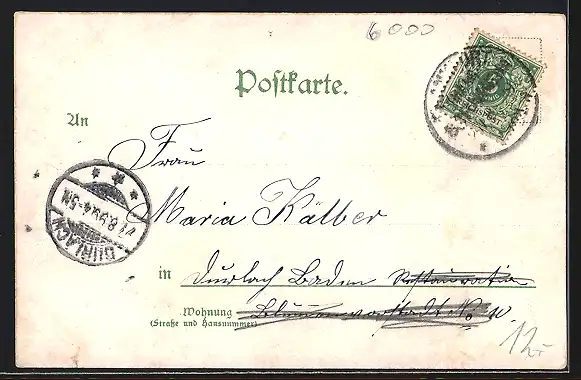 6000
Postkarte.
5
An
Frau
Maria Kälber
DURLACH
8.99.4-5N
in Durlach Baden Restauration
Wohnung Blumenvorstadt No 10.
(Straße und Hausnummer)
12.-